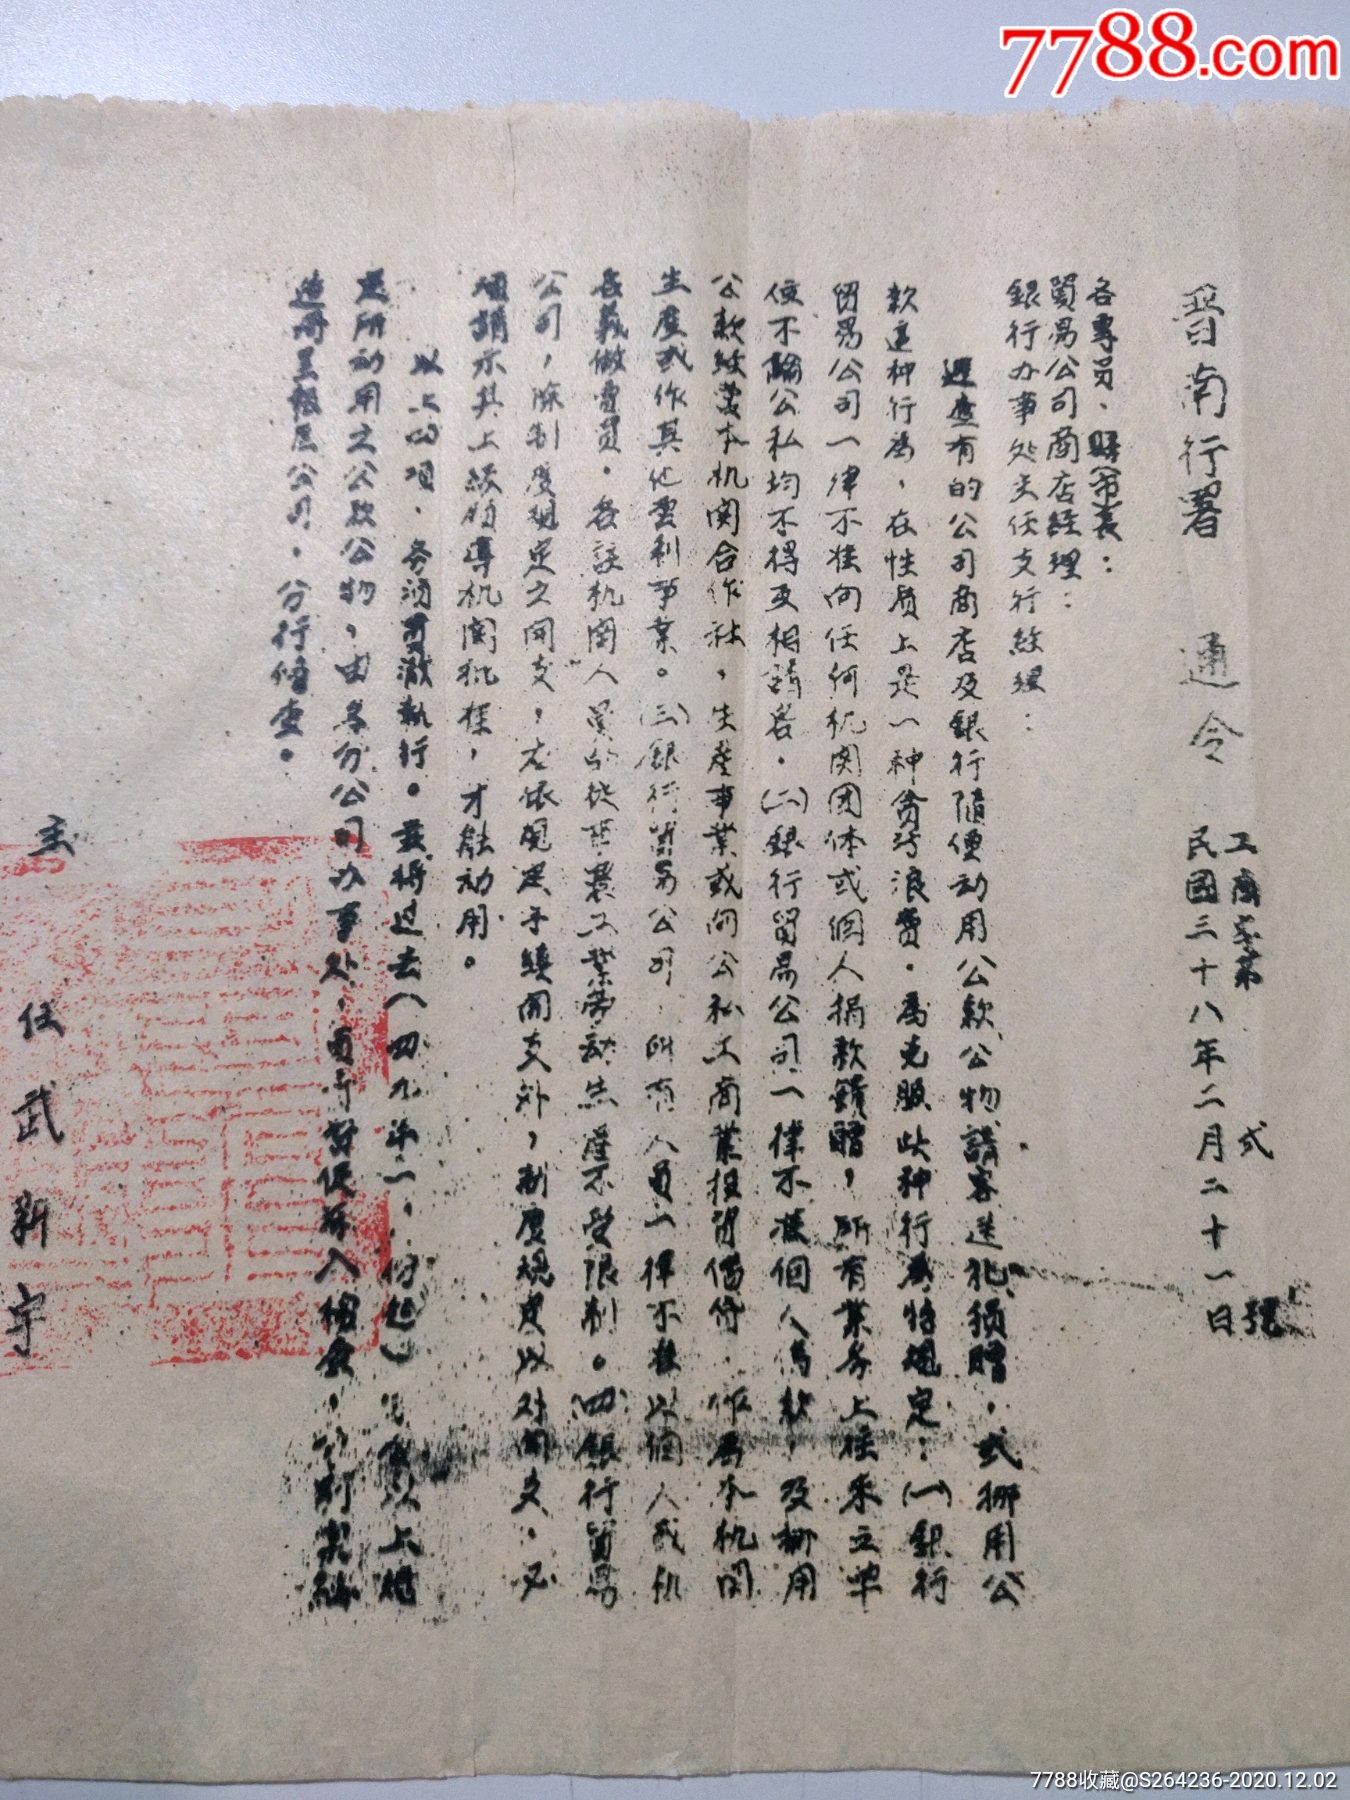 7788.com
晋南行署 通令
工商字第 弍 號
民國三十八年二月二十一日
各專員、縣市長：
貿易公司商店经理：
銀行办事处主任支行经理：
遅查有的公司商店及銀行隨便动用公款公物請客送礼损贈，或挪用公
款這种行為，在性质上是一种贪污浪費。為克服此种行為特規定：(一)銀行
貿易公司一律不准向任何机関团体或個人捐款餽贈，所有業务上往来立单
位不論公私均不得互相請客。(二)銀行貿易公司一律不准個人借款，及挪用
公款经营本机関合作社，生產事業或向公私工商業担保借貸，作為本机関
生產或作其他营利事業。(三)銀行貿易公司，所有人員一律不准以個人或机
名義做賣買。各該机関人員的從事農工業劳动生產不受限制。(四)銀行貿易
公司，除制度規定之開支，应依規定手續開支外，制度規定以外開支，必
須請示其上級領導机関批准，才能动用。
以上四项，务須貫澈執行。兹将过去(一四九年一月份起) 以上規
定所动用之公款公物，由各分公司办事处，
造冊呈报总公司，分行備查。
主任武新宇
7788收藏@S264236-2020.12.02